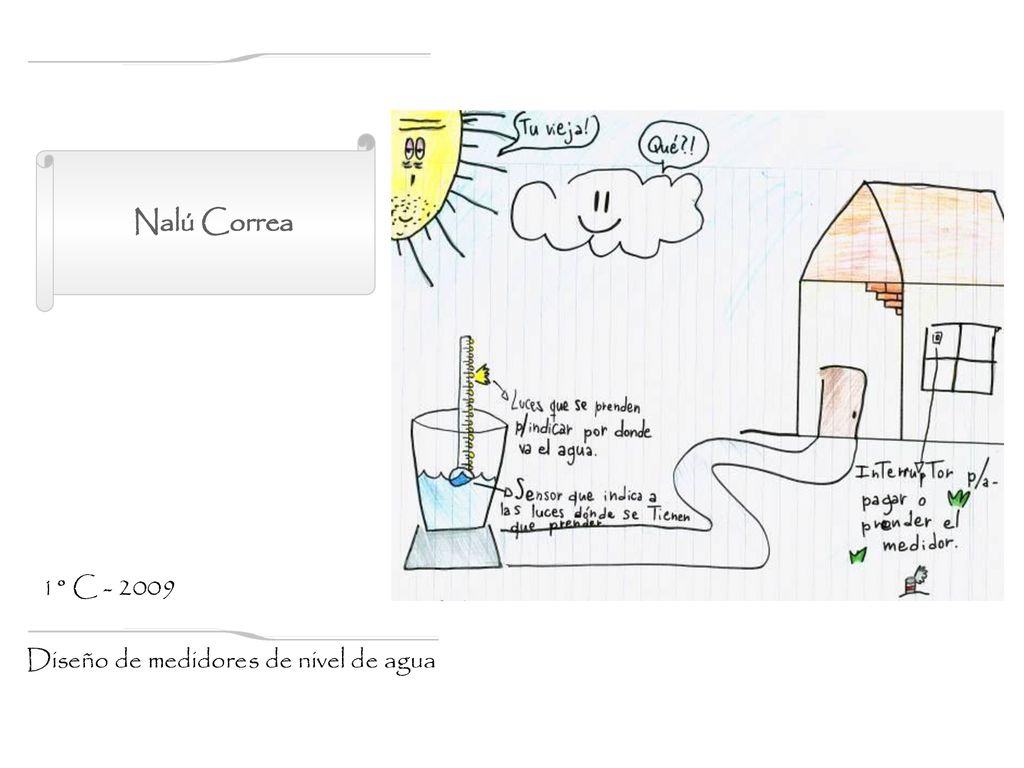 Nalú Correa
Tu vieja!
Qué?!
Luces que se prenden
p/indicar por donde
va el agua.
Sensor que indica a
las luces dónde se Tienen
que prender
InTerrupTor p/a-
pagar o
prender el
medidor.
1º C - 2009
Diseño de medidores de nivel de agua